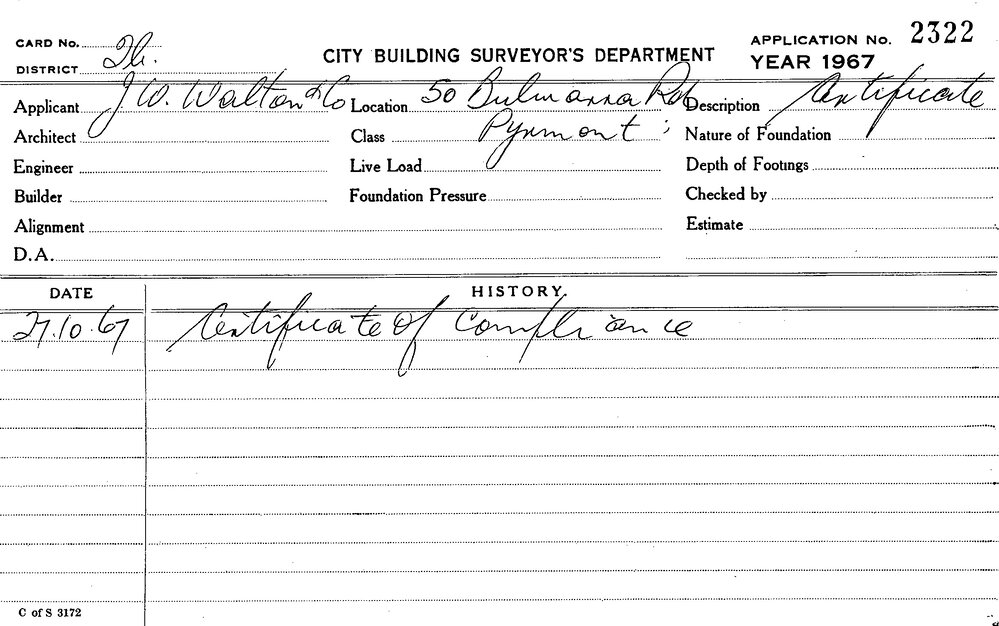 CARD No.
DISTRICT
CITY BUILDING SURVEYOR'S DEPARTMENT
APPLICATION No. 2322
YEAR 1967
Applicant J W. Walton & Co Location 50 Bulwarra Rd Description Certificate
Architect Class Pyrmont Nature of Foundation
Engineer Live Load Depth of Footings
Builder Foundation Pressure Checked by
Alignment Estimate
D.A.
DATE HISTORY
27.10.67 Certificate of Compliance
C of S 3172